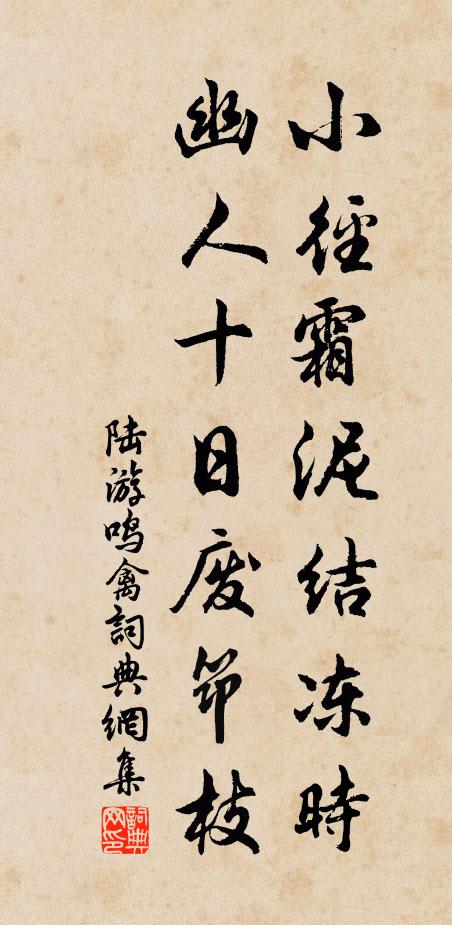 小徑霜泥结冻時
幽人十日废筇枝
陆游鸣禽詞典網集
詞典
网印